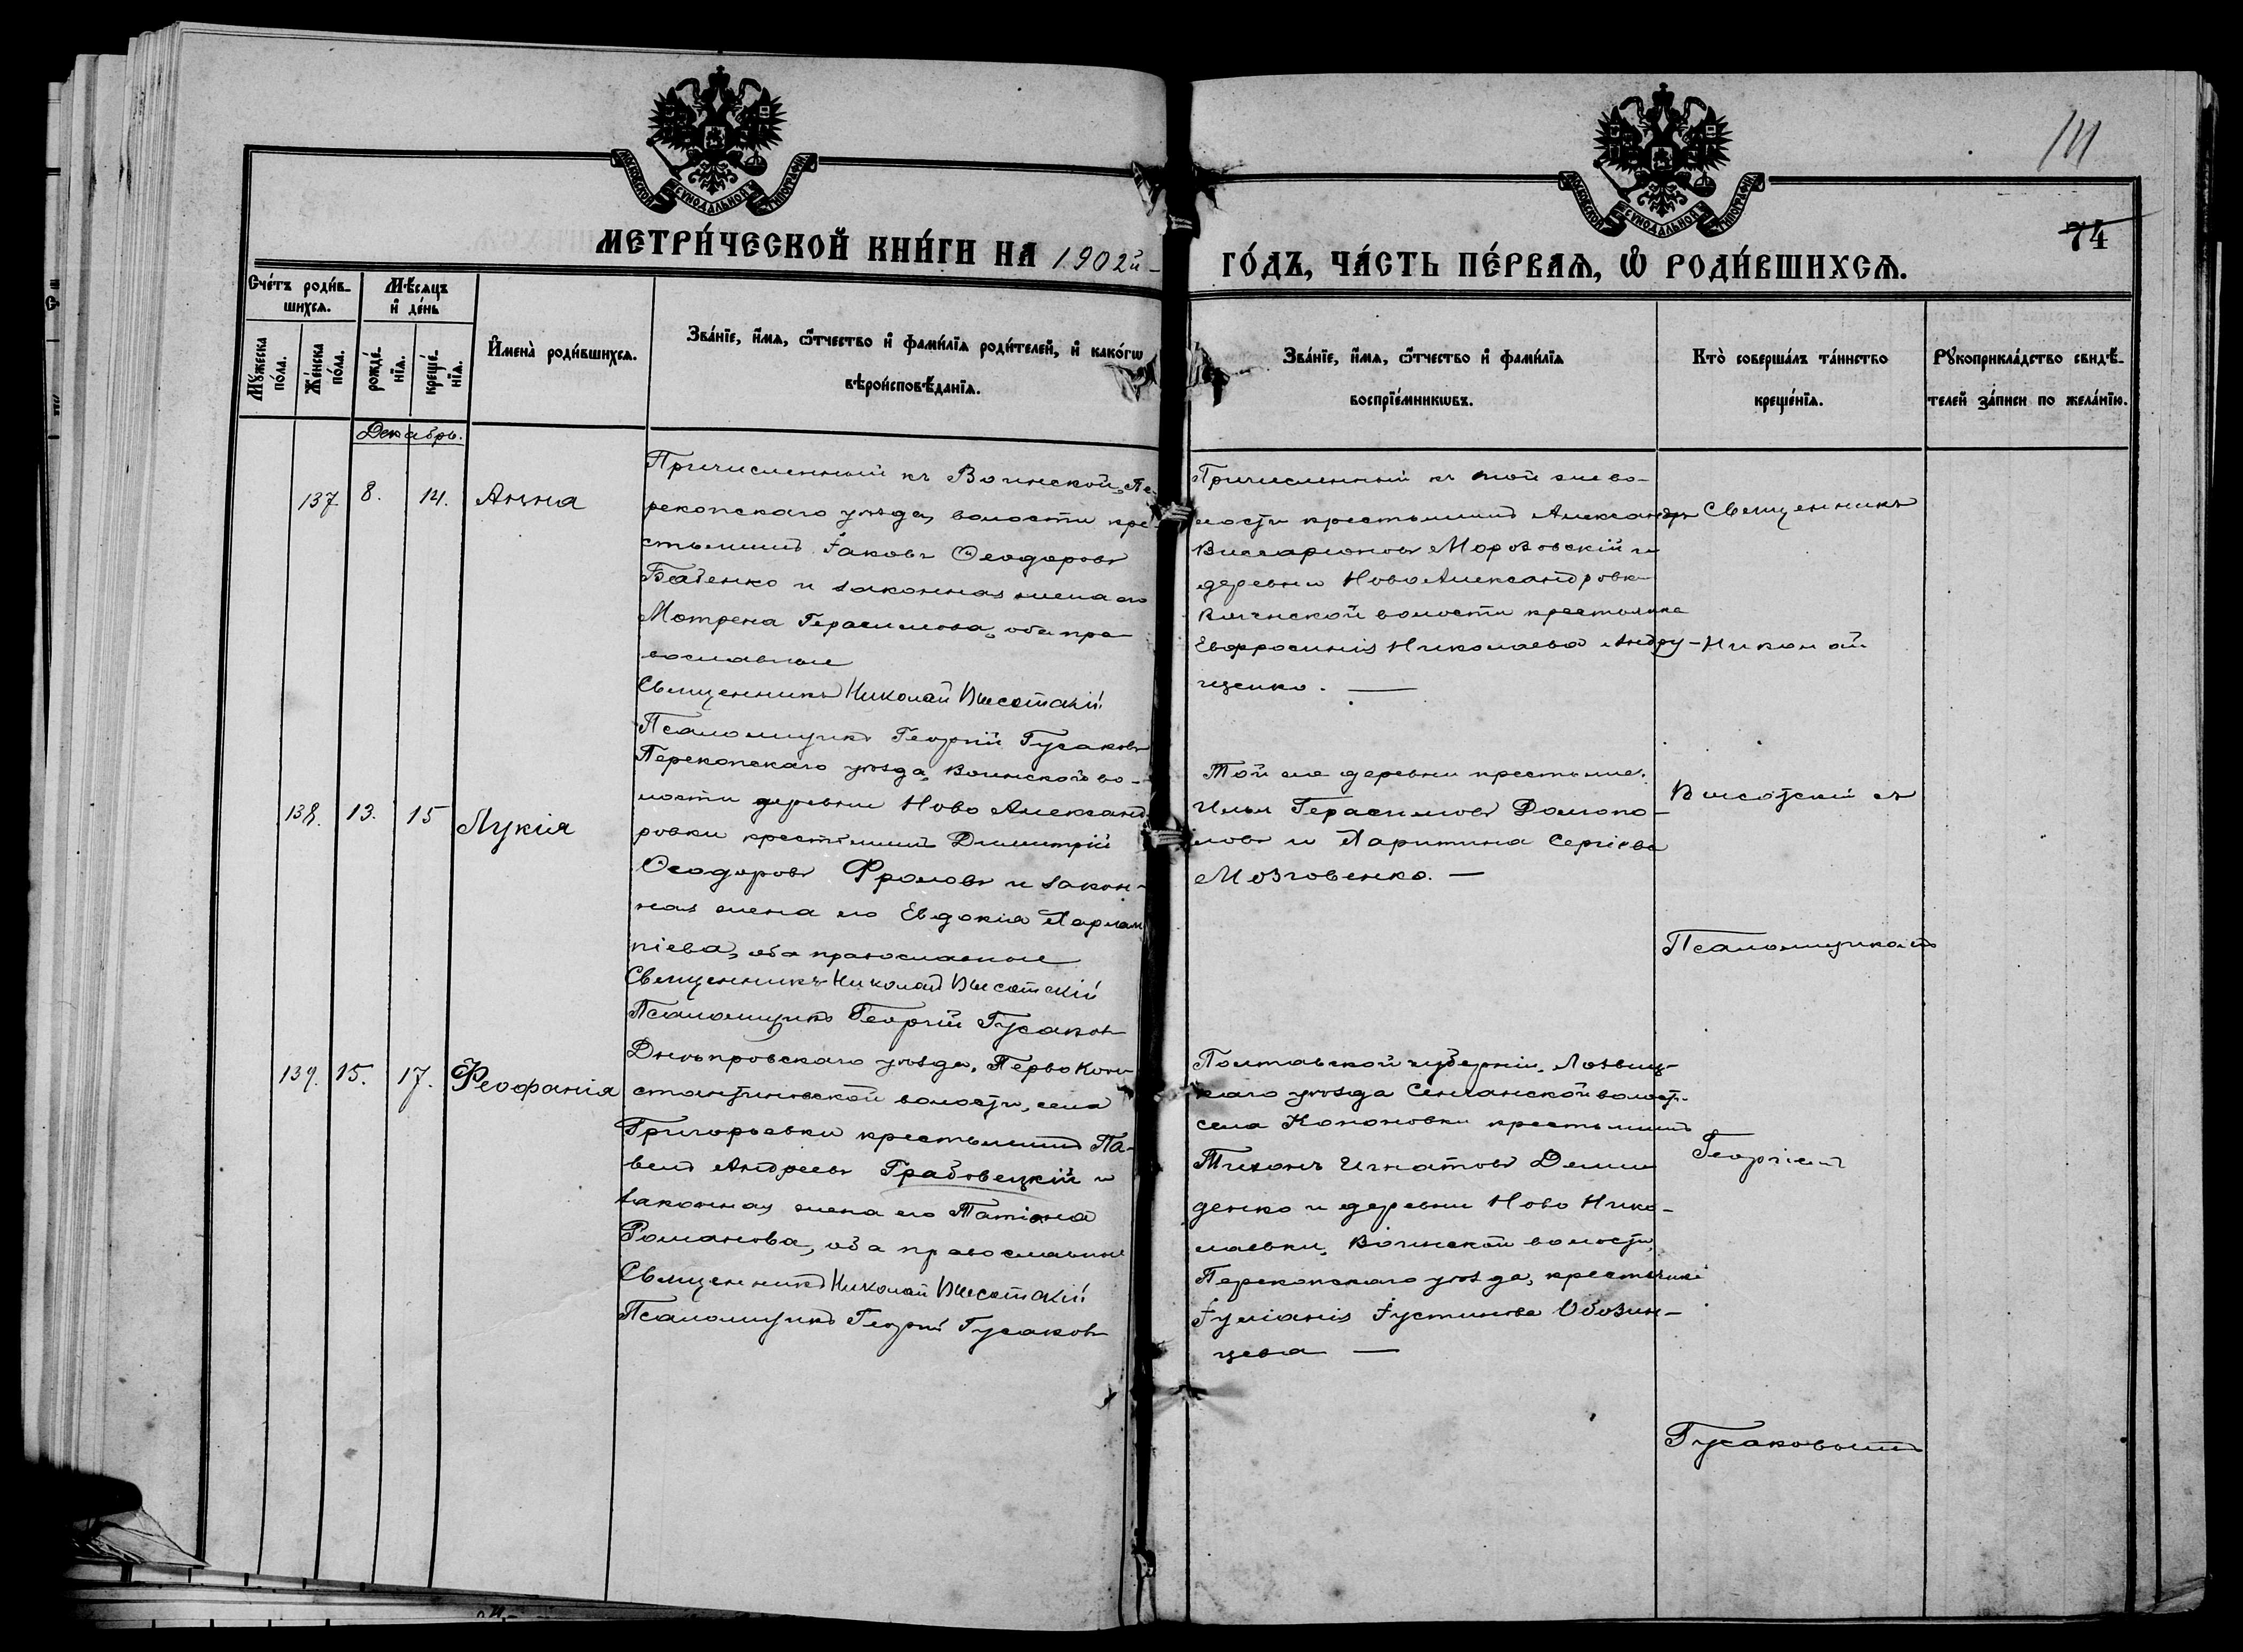 МОСКОВСКОЙ СУНОДАЛЬНОЙ ТИПОГРАФІИ
МОСКОВСКОЙ СУНОДАЛЬНОЙ ТИПОГРАФІИ
111
74
МЕТРИ́ЧЕСКОЙ КНИ́ГИ НА 1902й
ГО́ДЪ, ЧА́СТЬ ПЕ́РВАѦ, Ѽ РОДИ́ВШИХСѦ.
Сче́тъ роди́в-
шихсѧ.
Мꙋ́жеска
по́ла.
Же́нска
по́ла.
Мѣ́сѧцъ
и҆ де́нь
рожде́-
нїѧ.
креще́-
нїѧ.
И҆мена̀ роди́вшихсѧ.
Зва́нїе, и҆́мѧ, ѻ҆́тчество и҆ фами́лїѧ роди́телей, и҆ како́гѡ
вѣроисповѣ́данїѧ.
Зва́нїе, и҆́мѧ, ѻ҆́тчество и҆ фами́лїѧ
воспрїе́мникѡвъ.
Кто̀ соверша́лъ та́инство
креще́нїѧ.
Рꙋкоприкла́дство свидѣ́-
телей за́писи по жела́нїю.
Декабрь.
137
8.
14.
Анна
Причисленный къ Воинской, Пе-
рекопскаго уѣзда, волости кре-
стьянинъ Іаковъ Ѳеодоровъ
Баденко и законная жена его
Мотрена Герасимова, оба пра-
вославные
Священникъ Николай Высотскій
Псаломщикъ Георгій Гусаковъ
Причисленный къ той же во-
лости крестьянинъ Александръ
Виссаріоновъ Морозовскій и
деревни НовоАлександровки
Воинской волости крестьянка
Евфросинія Николаева Андру-
щенко. —
Священникъ
Николай
138.
13.
15
Лукія
Перекопскаго уѣзда, Воинской во-
лости деревни Ново Александ
ровки крестьянинъ Димитрій
Ѳеодоровъ Фроловъ и закон-
ная жена его Евдокія Харлам
піева, оба православные
Священникъ Николай Высотскій
Псаломщикъ Георгій Гусаковъ
Той же деревни крестьяне:
Илья Герасимовъ Домопо-
ловъ и Харитина Сергіева
Мозговенко. —
Высотскій съ
Псаломщикомъ
139.
15.
17.
Феофанія
Днѣпровскаго уѣзда, Перво Кон-
стантиновской волости, села
Григорьевки крестьянинъ Па-
велъ Андреевъ Грабовецкій и
законная жена его Татіана
Романова, оба православные
Священникъ Николай Высотскій
Псаломщикъ Георгій Гусаковъ
Полтавской губерніи, Лохвиц-
каго уѣзда Сенчанской волости
села Кононовки крестьянинъ
Тихонъ Игнатовъ Деми
денко и деревни Ново Нико-
лаевки, Воинской волости,
Перекопскаго уѣзда, крестьянка
Іуліанія Іустинова Обозин-
цева —
Георгіемъ
Гусаковымъ